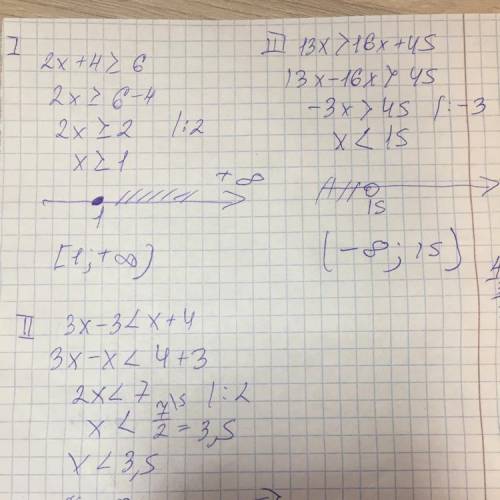 I
2x+4≥6
2x≥6-4
2x≥2 |:2
x≥1
+∞
1
[1;+∞)
II 13x>16x+45
13x-16x>45
-3x>45 |:-3
x<15
15
(-∞;15)
II 3x-3<x+4
3x-x<4+3
2x<7 |:2
x<7\5/2=3,5
x<3,5